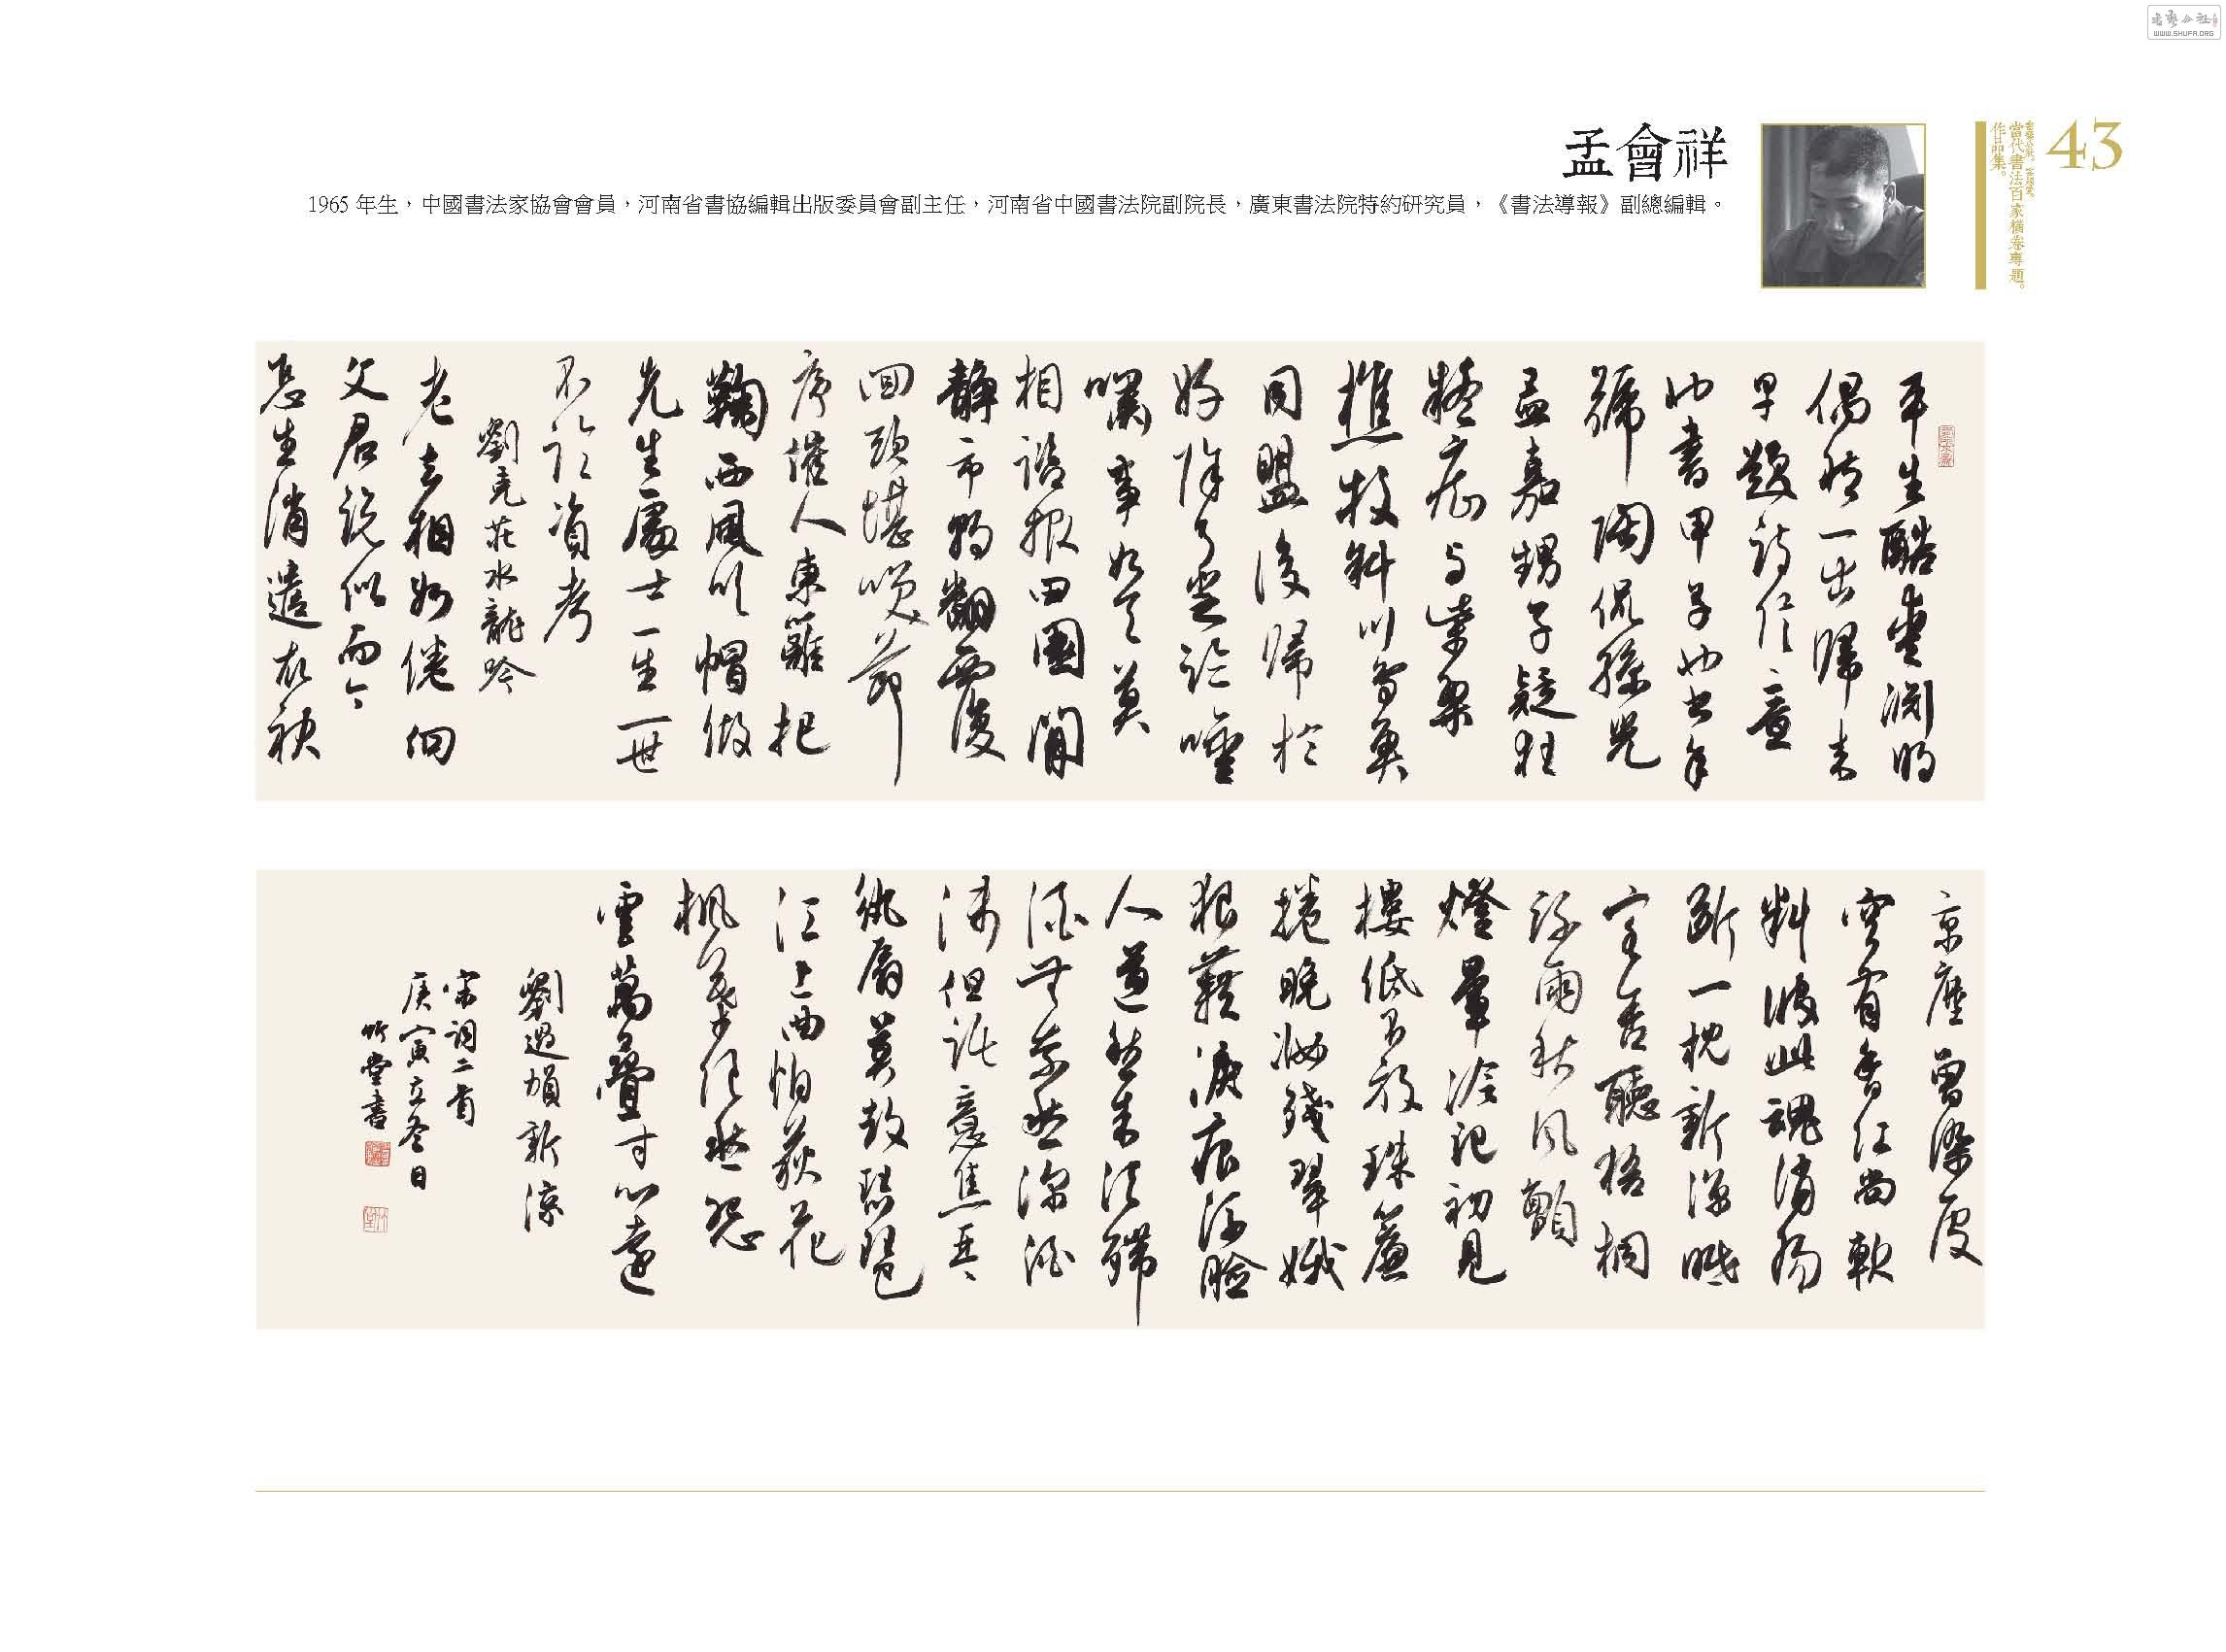 43
書藝公社
WWW.SHUFA.ORG
當代書法百家橫卷專題。
作品集。
孟會祥
1965 年生，中國書法家協會會員，河南省書協編輯出版委員會副主任，河南省中國書法院副院長，廣東書法院特約研究員，《書法導報》副總編輯。
平生酷愛淵明
偶然一出歸來
早題詩信意
也書甲子也書年
號陶侃孫兒
孟嘉甥子疑狂
疑傲與柴桑
樵牧斜川魚鳥
同盟後歸於
好除了
事如天莫
相諮報田園閒
靜市朝翻覆
回頭堪笑節
序催人東籬把
鞠西風吹帽做
先生處士一生一世
不論資考
劉克莊水龍吟
老去相如倦向
文君説似而今
怎生消遣衣袂
京塵曾染處
空有香紅尚軟
料彼此魂消腸
斷一枕新涼眠
客舍聽梧桐
疏雨秋風顫
燈暈冷記初見
樓低不放珠簾
捲晚妝殘翠娥
狼藉淚痕流臉
人道愁來須殢
酒無奈愁深酒
淺但託意焦琴
紈扇莫鼓琵琶
江上曲怕荻花
楓葉俱愁怨
雲萬疊寸心遠
劉過賀新涼
宋詞二首
庚寅立冬日
竹堂書